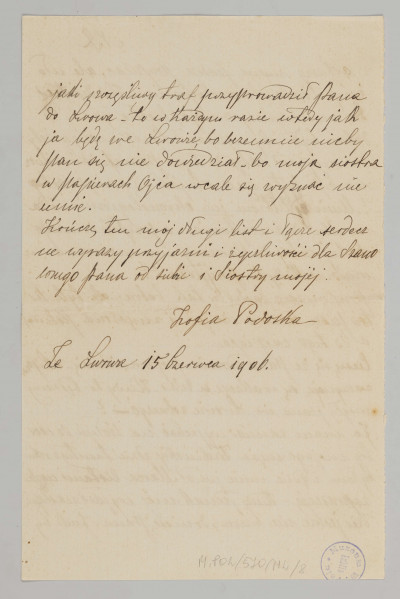 jaki szczęśliwy traf przyprowadził Pana
do Lwowa – to w każdym razie wtedy jak
ja będę we Lwowie, bo bezemnie nicby
Pan się nie dowiedział – bo moja siostra
w papierach Ojca wcale się wyznać nie
umie.
Kończę ten mój długi list i łączę serdecz
ne wyrazy przyjaźni i życzliwości dla Szano
wnego Pana od siebie i Siostry mojéj.
Zofia Podoska
Ze Lwowa 15 Czerwca 1906.